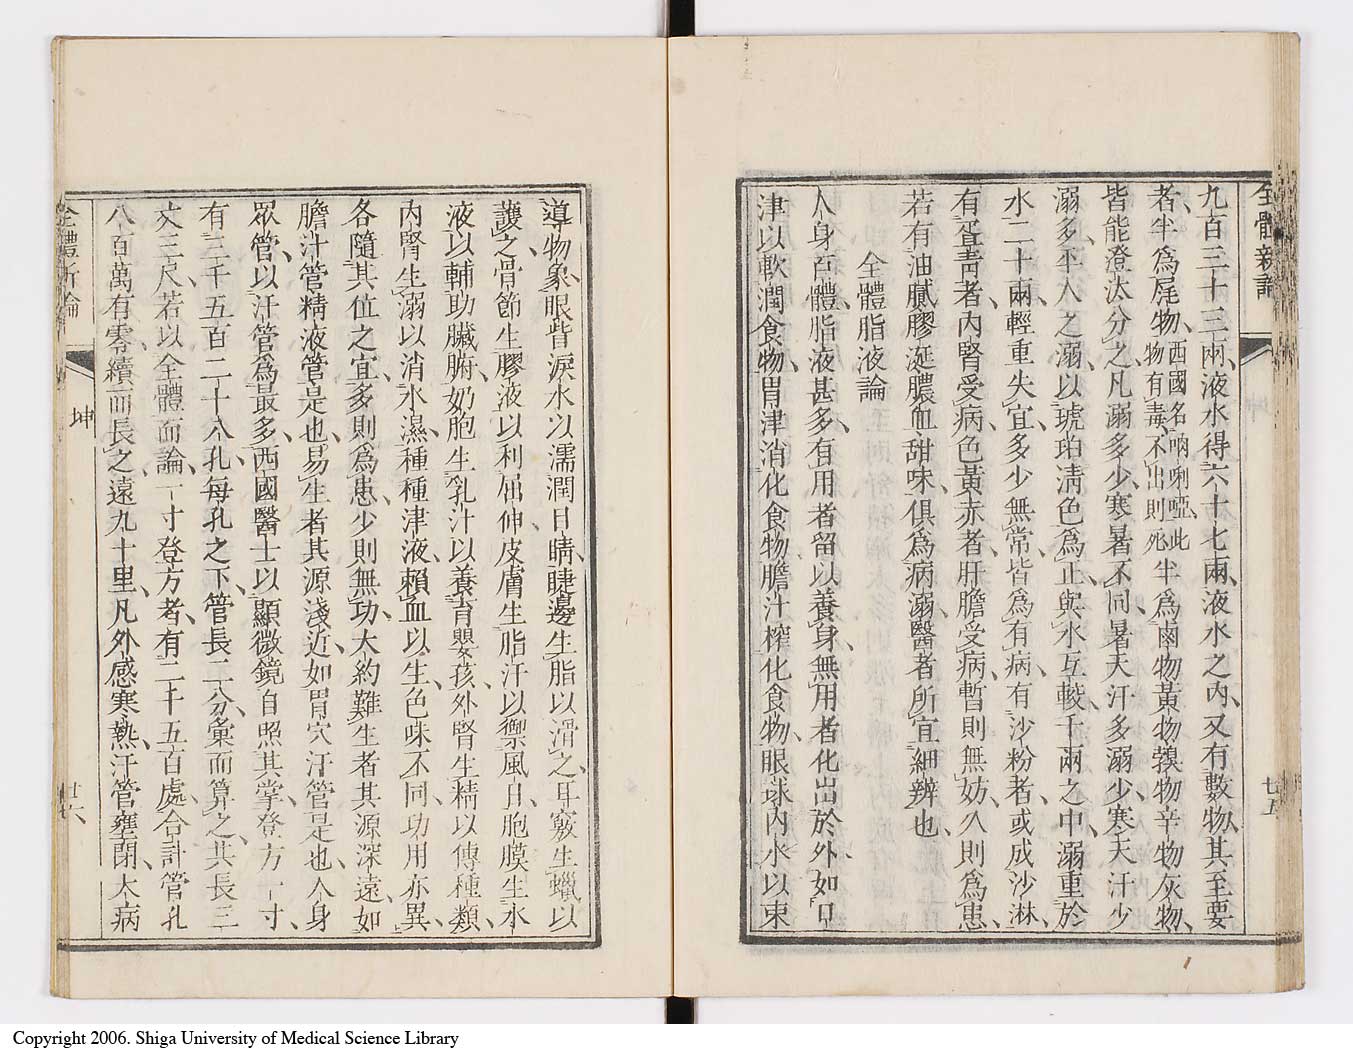 全體新論
九百三十三兩、液水得六十七兩、液水之内、又有數物、其至要
者、半爲尿物、西國名吶唎啞、此物有毒、不出則死半爲鹵物黃物鏹物辛物灰物、
皆能澄汰分之、凡溺多少、寒暑不同、暑天汗多溺少、寒天汗少
溺多、平人之溺、以琥珀清色爲正、與水互較、千兩之中、溺重於
水二十兩、輕重失宜、多少無常、皆爲有病、有沙粉者、或成沙淋、
有疍青者、内腎受病、色黃赤者、肝膽受病、暫則無妨、久則爲患、
若有油膩膠涎膿血甜味、俱爲病溺、醫者所宜細辨也、
全體脂液論
人身百體、脂液甚多、有用者留以養身、無用者化出於外、如口
津以軟潤食物、胃津消化食物、膽汁榨化食物、眼球内水以束
七五
導物象、眼眥淚水以濡潤目睛、睫邊生脂以滑之、耳竅生蠟以
護之、骨節生膠液以利屈伸、皮膚生脂汗以禦風日、胞膜生水
液以輔助臟腑、奶胞生乳汁以養育嬰孩、外腎生精以傳種類、
内腎生溺以消水濕、種種津液、賴血以生、色味不同、功用亦異、
各隨其位之宜、多則爲患、少則無功、大約難生者其源深遠、如
膽汁管精液管是也、易生者其源淺近、如胃穴汗管是也、人身
眾管、以汗管爲最多、西國醫士以顯微鏡自照其掌、登方一寸、
有三千五百二十八孔、每孔之下、管長二分、彙而算之、共長三
丈三尺、若以全體而論、一寸登方者、有二千五百處、合計管孔
八百萬有零、續而長之、遠九十里、凡外感寒熱、汗管壅閉、大病
全體新論
坤
廿六